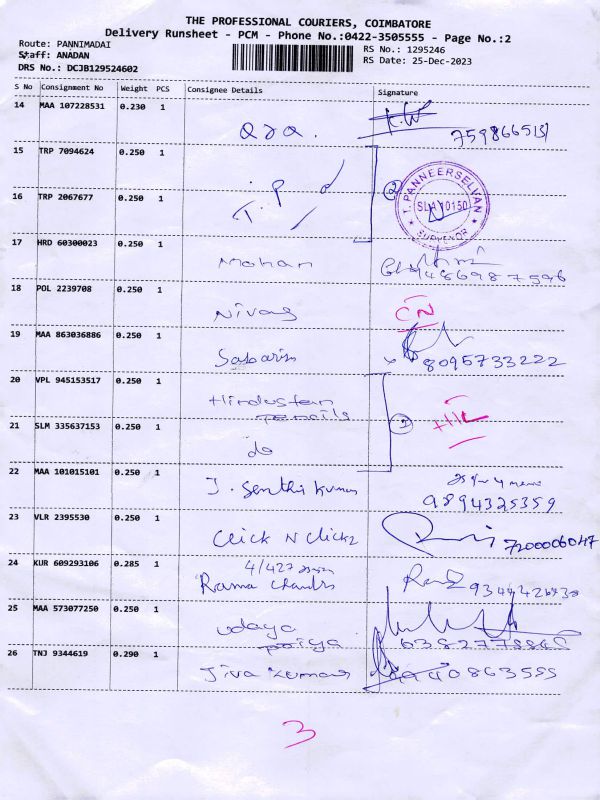 THE PROFESSIONAL COURIERS, COIMBATORE
Delivery Runsheet - PCM - Phone No.:0422-3505555 - Page No.:2
Route: PANNIMADAI
RS No.: 1295246
Staff: ANADAN
RS Date: 25-Dec-2023
DRS No.: DCJB129524602
S No Consignment No Weight PCS Consignee Details Signature
14 MAA 107228531 0.230 1
15 TRP 7094624 0.250 1
16 TRP 2067677 0.250 1 T. P
2
T. PANNEERSELVAN
SLA 10150
SURVEYOR
17 HRD 60300023 0.250 1 Mohan
18 POL 2239708 0.250 1 Nivas CN
19 MAA 863036886 0.250 1 Sabarish 8095733222
20 VPL 945153517 0.250 1 Hindustan
pencils
2
21 SLM 335637153 0.250 1 do
22 MAA 101015101 0.250 1 J. Senthil Kumar
9894325359
23 VLR 2395530 0.250 1 Click N Clickz 7200006047
24 KUR 609293106 0.285 1 4/427
Rama Chandra
25 MAA 573077250 0.250 1 Udaya
26 TNJ 9344619 0.290 1 Jiva Kumar
3